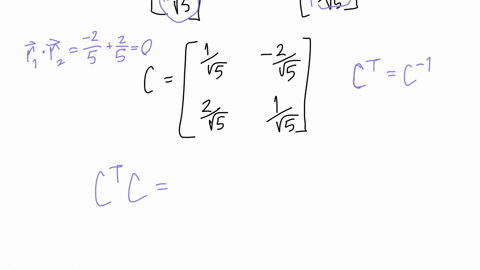 √5] √5]
r⃗₁·r⃗₂ = -2/5 + 2/5 = 0
C = [1/√5 -2/√5
2/√5 1/√5]
Cᵀ = C⁻¹
CᵀC =